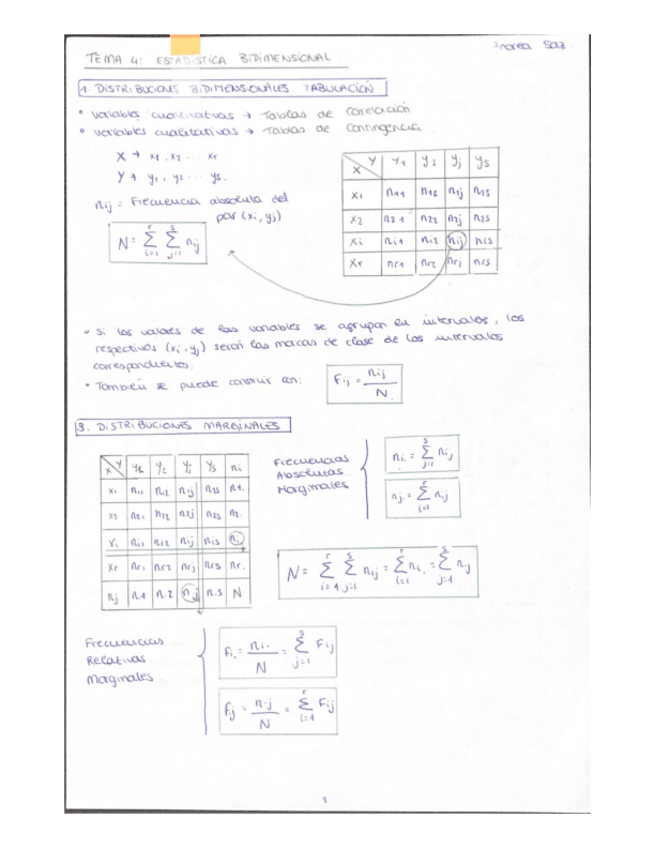 Andrea Saz
TEMA 4: ESTADISTICA BIDIMENSIONAL.
1. DISTRIBUCIONES BIDIMENSIONALES. TABULACIÓN.
• variables cuantitativas → Tablas de correlación
• variables cualitativas → Tablas de Contingencia.
X → x1, x2 ... xr
Y → y1, y2 ... ys.
nij = Frecuencia absoluta del par (xi, yj)
N = Σ(i=1, r) Σ(j=1, s) nij
X Y | y1 | y2 | yj | ys
x1 | n11 | n12 | n1j | n1s
x2 | n21 | n22 | n2j | n2s
xi | ni1 | ni2 | nij | nis
xr | nr1 | nr2 | nrj | nrs
• Si los valores de las variables se agrupan en intervalos, los
respectivos (xi, yj) serán las marcas de clase de los intervalos
correspondientes.
• También se puede construir en: Fij = nij / N.
3. DISTRIBUCIONES MARGINALES
X Y | y1 | y2 | yj | ys | ni
x1 | n11 | n12 | n1j | n1s | n1.
x2 | n21 | n22 | n2j | n2s | n2.
xi | ni1 | ni2 | nij | nis | ni.
xr | nr1 | nr2 | nrj | nrs | nr.
nj | n.1 | n.2 | n.j | n.s | N
Frecuencias
Absolutas
Marginales
ni. = Σ(j=1, s) nij
n.j = Σ(i=1, r) nij
N = Σ(i=1, r) Σ(j=1, s) nij = Σ(i=1, r) ni. = Σ(j=1, s) n.j
Frecuencias
Relativas
Marginales
Fi. = ni. / N = Σ(j=1, s) Fij
F.j = n.j / N = Σ(i=1, r) Fij
1